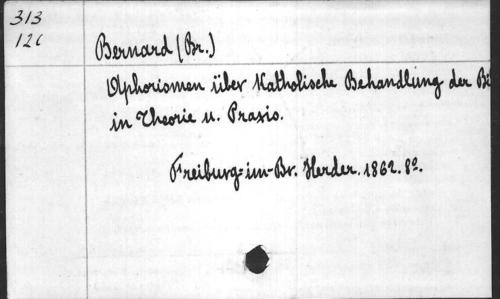 313
126
Bernard (Br.)
Aphorismen über Katholische Behandlung der
in Theorie u. Praxis.
Freiburg-im-Br. Herder. 1862. 8º.